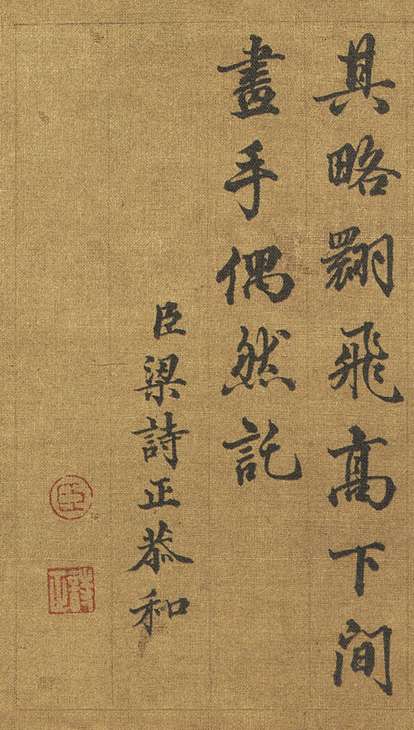 其略翾飛高下間
畫手偶然託
臣梁詩正恭和
臣
詩正